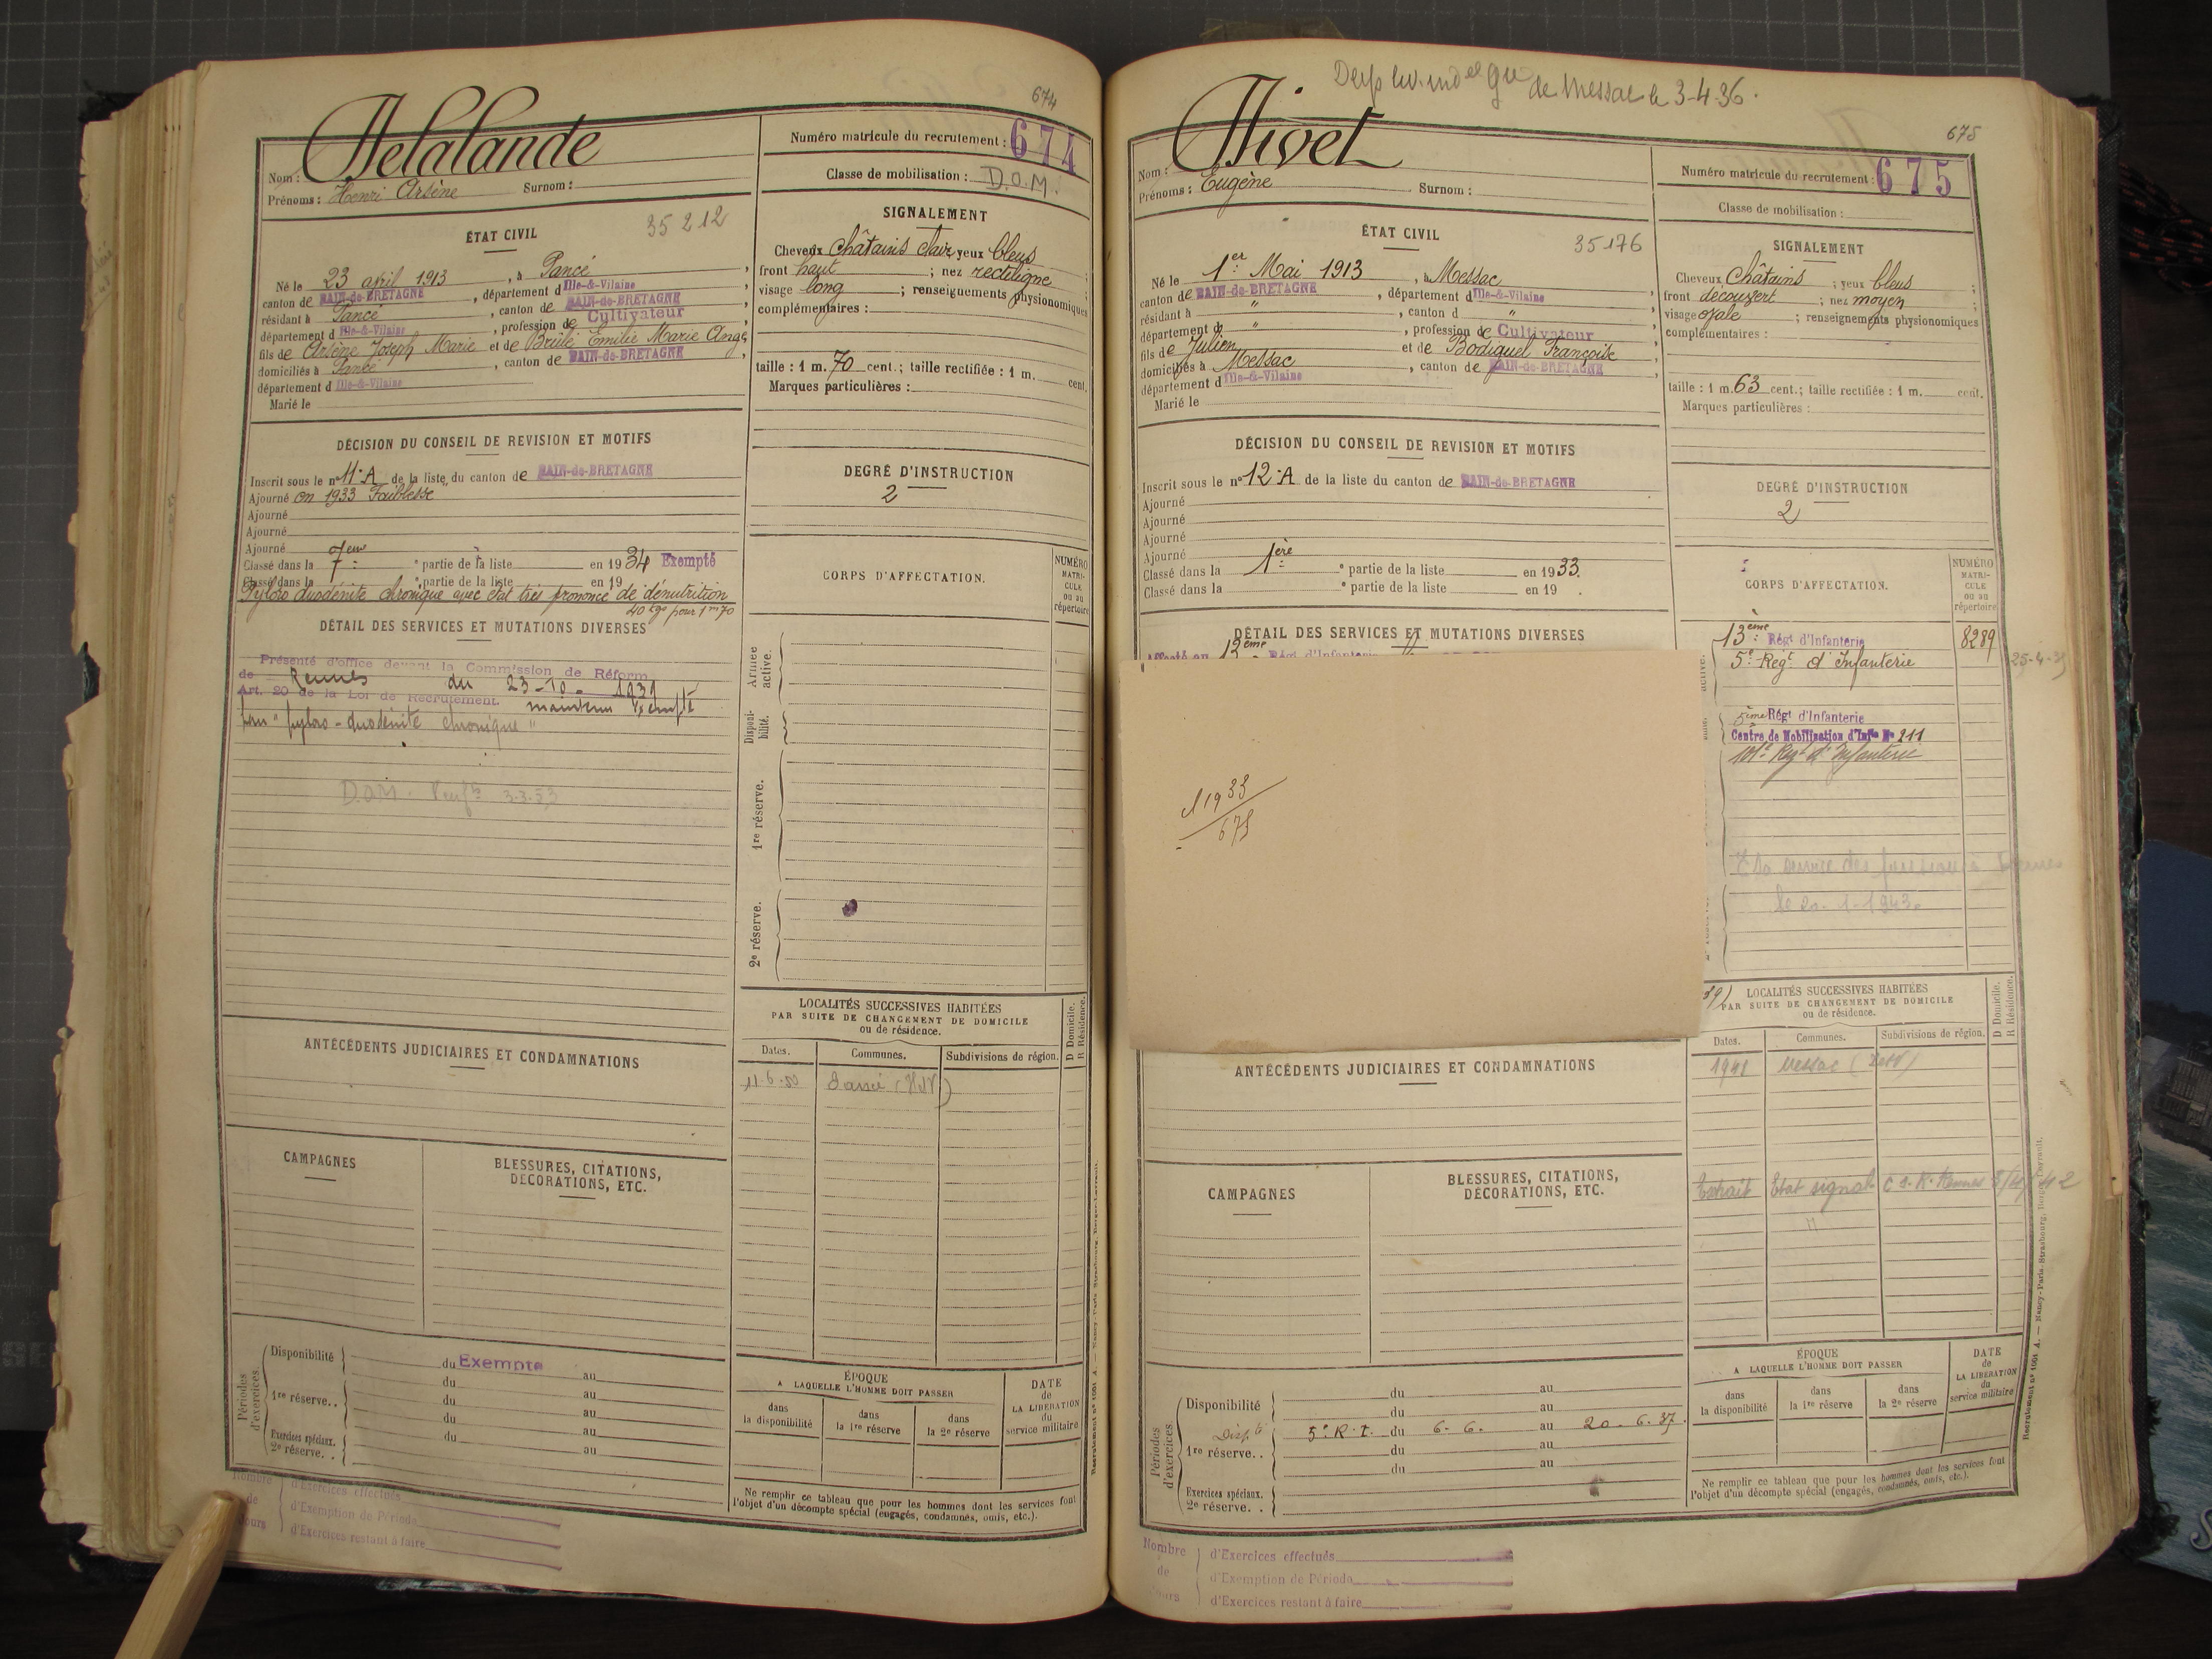 674
Delalande
Nom :
Prénoms : Henri Arsène Surnom :
Numéro matricule du recrutement : 674
Classe de mobilisation : D.O.M.
ÉTAT CIVIL
35 212
Né le 23 avril 1913, à Pancé,
canton de BAIN-de-BRETAGNE, département d Ille-&-Vilaine,
résidant à Pancé, canton de BAIN-de-BRETAGNE,
département d Ille-&-Vilaine, profession de Cultivateur
fils de Arsène Joseph Marie et de Brulé Emilie Marie Ange,
domiciliés à Pancé, canton de BAIN-de-BRETAGNE,
département d Ille-&-Vilaine
Marié le
SIGNALEMENT
Cheveux châtains clair yeux bleus ;
front haut ; nez rectiligne ;
visage long ; renseignements physionomiques
complémentaires :
taille : 1 m. 70 cent. ; taille rectifiée : 1 m. cent.
Marques particulières :
DÉCISION DU CONSEIL DE REVISION ET MOTIFS
Inscrit sous le n° 11 A de la liste du canton de BAIN-de-BRETAGNE
Ajourné en 1933 Faiblesse
Ajourné
Ajourné
Ajourné
Classé dans la 7eme partie de la liste en 1934 Exempté
Classé dans la e partie de la liste en 19
Pyloro duodénite chronique avec état très prononcé de dénutrition
40 kgs pour 1m70
DEGRÉ D'INSTRUCTION
2
CORPS D'AFFECTATION.
NUMÉRO MATRICULE ou au répertoire
DÉTAIL DES SERVICES ET MUTATIONS DIVERSES
Présenté d'office devant la Commission de Réform
de Rennes du 23-10-1939
Art. 20 de la Loi de Recrutement. maintenu Exempté
pour "pyloro-duodénite chronique"
D.O.M. 3.3.53
Armée active.
Disponibilité.
1re réserve.
2e réserve.
LOCALITÉS SUCCESSIVES HABITÉES
PAR SUITE DE CHANGEMENT DE DOMICILE
ou de résidence.
D Domicile.
R Résidence.
Dates. Communes. Subdivisions de région.
11-6-50
ANTÉCÉDENTS JUDICIAIRES ET CONDAMNATIONS
CAMPAGNES
BLESSURES, CITATIONS,
DÉCORATIONS, ETC.
Périodes d'exercices.
Disponibilité du Exempté au
du au
1re réserve.. du au
du au
Exercices spéciaux. du au
2e réserve. .
ÉPOQUE
A LAQUELLE L'HOMME DOIT PASSER
dans la disponibilité
dans la 1re réserve
dans la 2e réserve
DATE de LA LIBÉRATION du service militaire
Ne remplir ce tableau que pour les hommes dont les services font
l'objet d'un décompte spécial (engagés, condamnés, omis, etc.).
Nombre de jours
d'Exercices effectués
d'Exemption de Période
d'Exercices restant à faire
de Messac le 3-4-36.
675
Nivet
Nom :
Prénoms : Eugène Surnom :
Numéro matricule du recrutement : 675
Classe de mobilisation :
ÉTAT CIVIL
35176
Né le 1er Mai 1913, à Messac,
canton de BAIN-de-BRETAGNE, département d Ille-&-Vilaine,
résidant à ", canton d ",
département d ", profession de Cultivateur,
fils de Julien et de Bodiguel Françoise,
domiciliés à Messac, canton de BAIN-de-BRETAGNE,
département d Ille-&-Vilaine
Marié le
SIGNALEMENT
Cheveux châtains ; yeux bleus ;
front découvert ; nez moyen ;
visage ovale ; renseignements physionomiques
complémentaires :
taille : 1 m. 63 cent. ; taille rectifiée : 1 m. cent.
Marques particulières :
DÉCISION DU CONSEIL DE REVISION ET MOTIFS
Inscrit sous le n° 12 A de la liste du canton de BAIN-de-BRETAGNE
Ajourné
Ajourné
Ajourné
Ajourné
Classé dans la 1ère e partie de la liste en 1933.
Classé dans la e partie de la liste en 19 .
DEGRÉ D'INSTRUCTION
2
CORPS D'AFFECTATION.
NUMÉRO MATRICULE ou au répertoire
DÉTAIL DES SERVICES ET MUTATIONS DIVERSES
Affecté au 13ème Régt d'Infanterie
13ème Régt d'Infanterie 8289
5e Regt d'Infanterie
5ème Régt d'Infanterie
Centre de Mobilisation d'Infie N° 211
101e Regt d'Infanterie
le 20-1-1943.
1933
675
LOCALITÉS SUCCESSIVES HABITÉES
PAR SUITE DE CHANGEMENT DE DOMICILE
ou de résidence.
D Domicile.
R Résidence.
Dates. Communes. Subdivisions de région.
1941 Messac
Extrait Etat signal
ANTÉCÉDENTS JUDICIAIRES ET CONDAMNATIONS
CAMPAGNES
BLESSURES, CITATIONS,
DÉCORATIONS, ETC.
Périodes d'exercices.
Disponibilité du au
du au
Dispté 5e R.I. du 6-6. au 20-6-37.
1re réserve.. du au
du au
Exercices spéciaux.
2e réserve. .
ÉPOQUE
A LAQUELLE L'HOMME DOIT PASSER
dans la disponibilité
dans la 1re réserve
dans la 2e réserve
DATE de LA LIBÉRATION du service militaire
Ne remplir ce tableau que pour les hommes dont les services font
l'objet d'un décompte spécial (engagés, condamnés, omis, etc.).
Nombre de jours
d'Exercices effectués
d'Exemption de Période
d'Exercices restant à faire